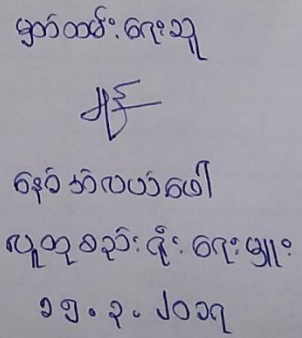 မှတ်တမ်းရေးသူ
နေဝင်အလယ်ပေါ်
လူထုစည်းရုံးရေးမှူး
၁၅.၃.၂၀၁၇